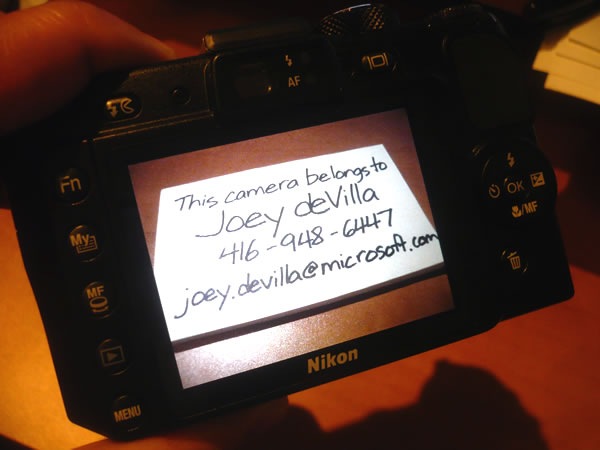 AF
Fn
My
MF
MENU
This camera belongs to
Joey deVilla
416-948-6447
joey.devilla@microsoft.com
OK
/MF
Nikon